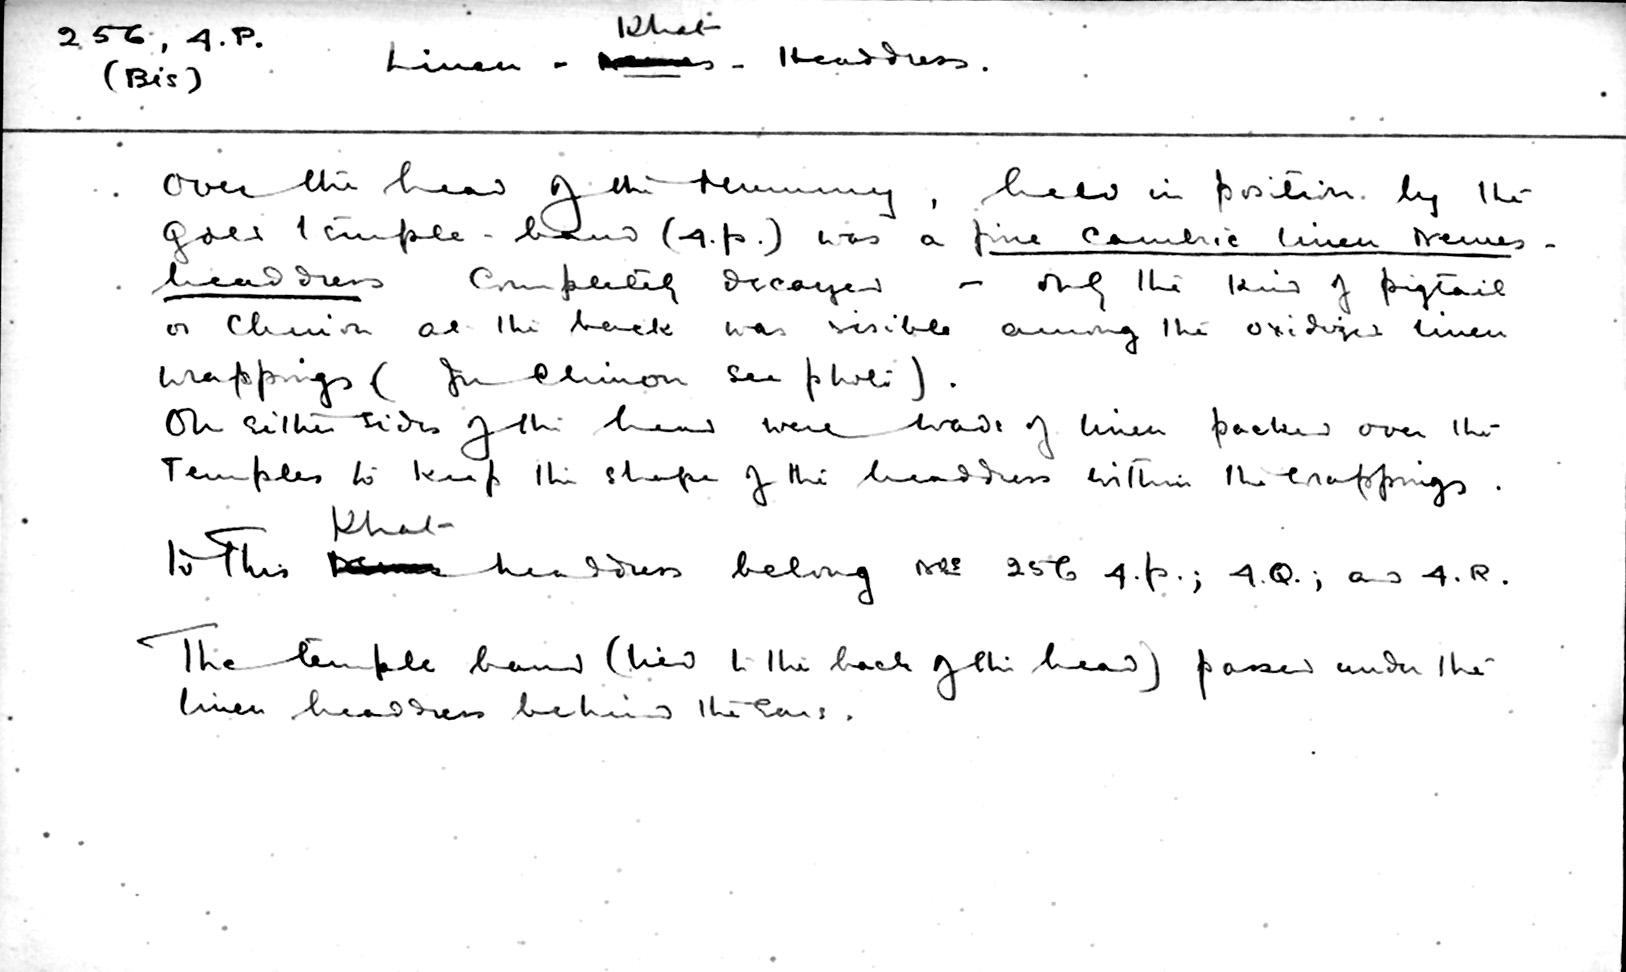 256, 4.P.
(Bis)
Khat
Linen - Nemes - Headdress.
Over the head of the Mummy, held in position by the
gold temple-band (4.p.) was a fine cambric linen Nemes-
headdress completely decayed - only the kind of pigtail
or Chinon at the back was visible among the oxidized linen
wrappings (for Chinon see photo).
On either sides of the head were wads of linen packed over the
Temples to keep the shape of the headdress within the wrappings.
Khat
To This Nemes headdress belong Nos 256 4.p.; 4.Q.; and 4.R.
The temple band (tied to the back of the head) passed under the
linen headdress behind the Ears.